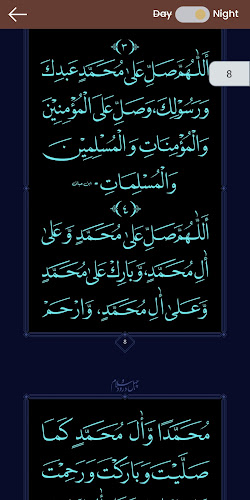 Day Night
﴿٣﴾
8
اَللّٰهُمَّ صَلِّ عَلٰى مُحَمَّدٍ عَبْدِكَ
وَرَسُوْلِكَ، وَصَلِّ عَلَى الْمُؤْمِنِيْنَ
وَالْمُؤْمِنَاتِ وَالْمُسْلِمِيْنَ
وَالْمُسْلِمَاتِ۔
﴿٤﴾
اَللّٰهُمَّ صَلِّ عَلٰى مُحَمَّدٍ وَّعَلٰى
اٰلِ مُحَمَّدٍ، وَبَارِكْ عَلٰى مُحَمَّدٍ
وَّعَلٰى اٰلِ مُحَمَّدٍ، وَارْحَمْ
8
چہل درود و سلام
مُحَمَّدًا وَّاٰلَ مُحَمَّدٍ كَمَا
صَلَّيْتَ وَبَارَكْتَ وَرَحِمْتَ